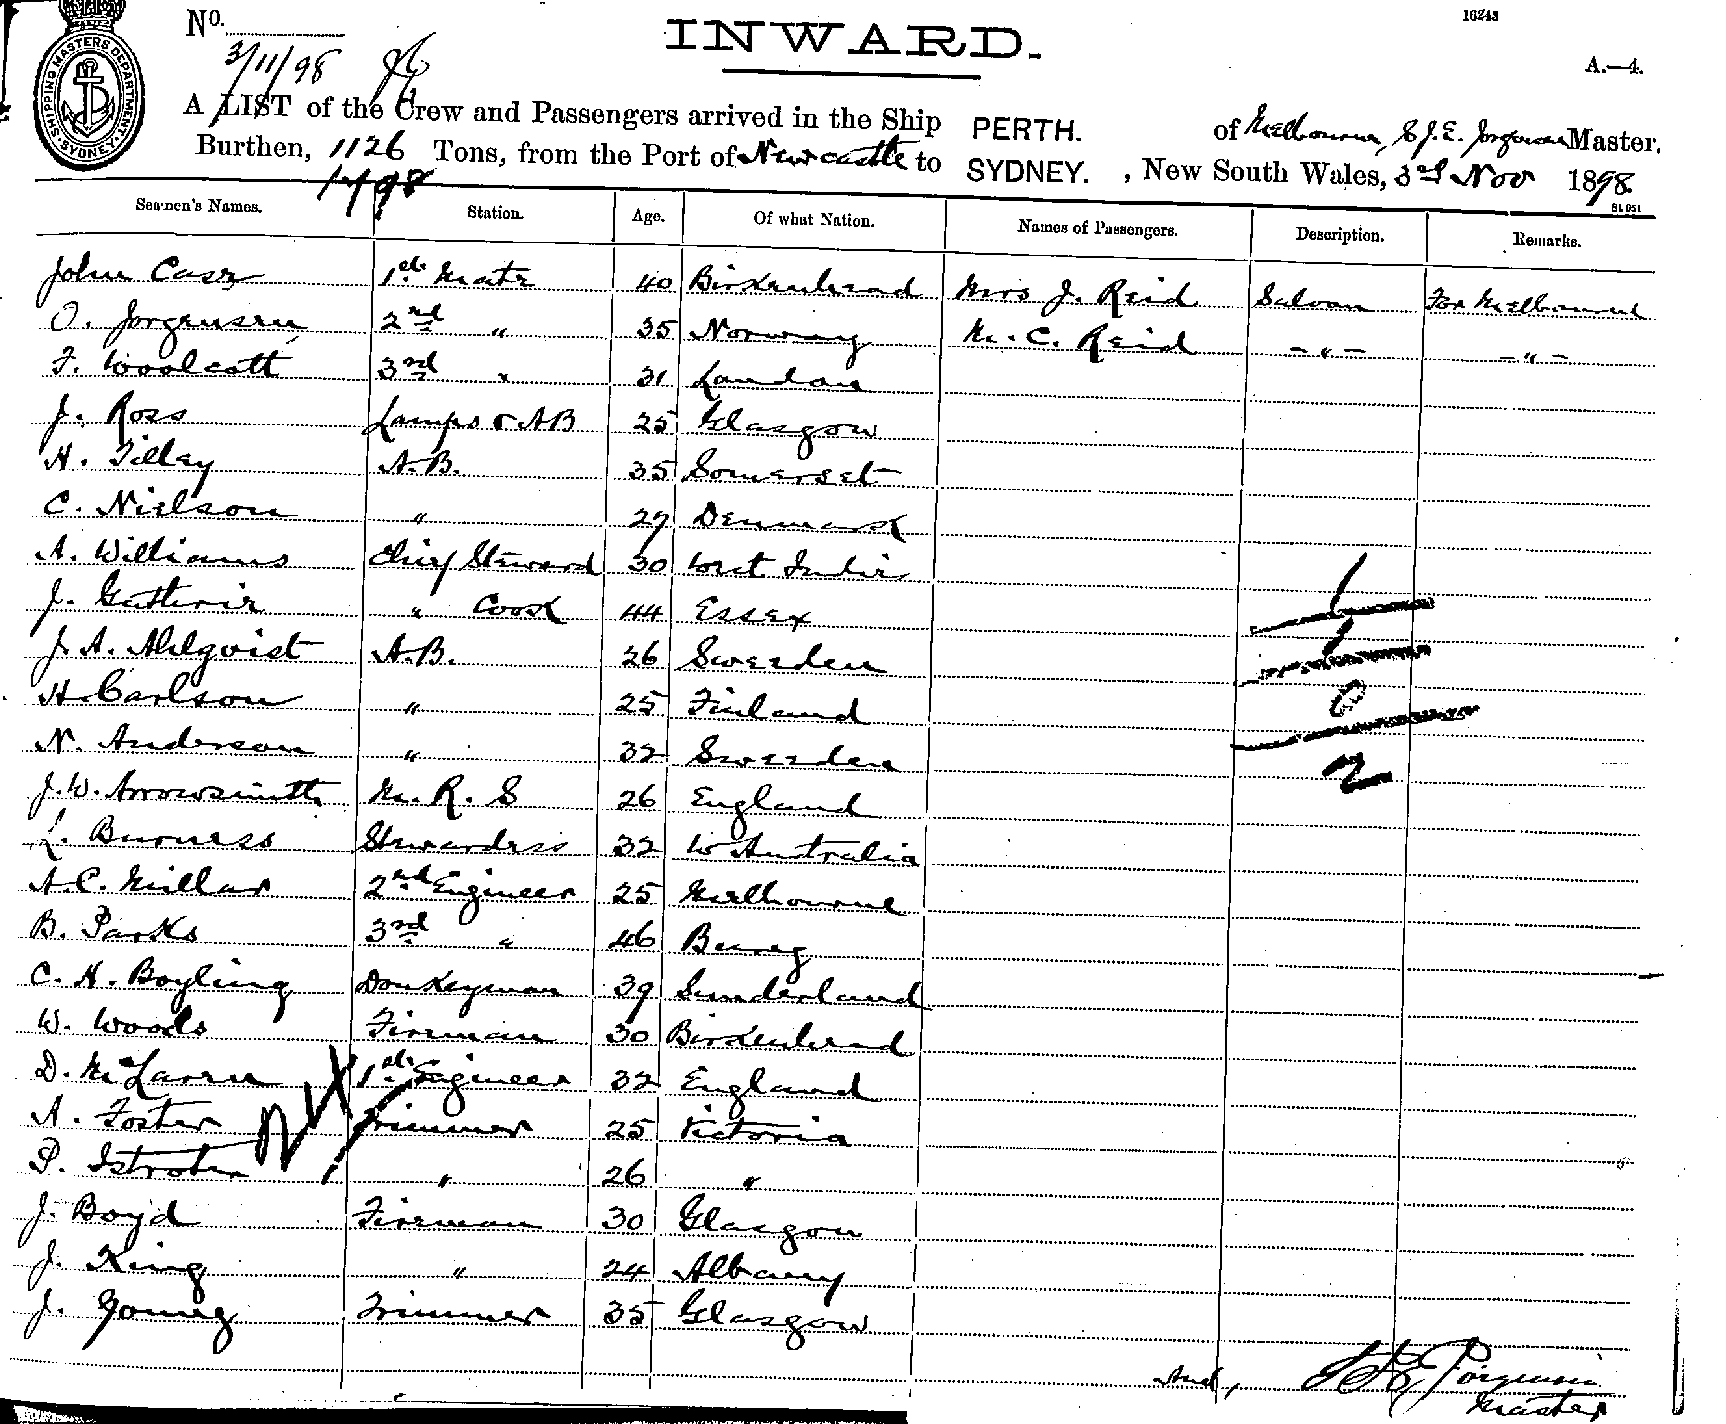 No.
INWARD.
16243
A.—4.
3/11/98
SHIPPING MASTERS DEPARTMENT SYDNEY
A LIST of the Crew and Passengers arrived in the Ship PERTH. of Melbourne, Jorgensen Master.
Burthen, 1126 Tons, from the Port of Newcastle to SYDNEY., New South Wales, 3rd Nov 1898
Seamen's Names. Station. Age. Of what Nation. Names of Passengers. Description. Remarks.
John Case 1st Mate 40 Birkenhead Mrs J. Reid Saloon For Melbourne
O. Jorgensen 2nd " 35 Norway M. C. Reid -"- -"-
F. Woolcott 3rd " 31 London
J. Ross Lamps & AB 25 Glasgow
H. Tilley A.B. 35 Somerset
C. Nielson " 27 Denmark
A. Williams Chief Steward 30 West Indie
J. Guthrie " Cook 44 Essex
1
J. A. Ahlqvist A.B. 26 Sweden
1
H. Carlson " 25 Finland
0
N. Anderson " 32 Sweden
2
J. W. Arrowsmith M. R. S 26 England
L. Burness Stewardess 32 W Australia
A. C. Millar 2nd Engineer 25 Melbourne
B. Parks 3rd " 46
C. H. Boyling Donkeyman 39 Sunderland
W. Woods Fireman 30 Birkenhead
D. McLaren 1st Engineer 32 England
A. Foster Trimmer 25 Victoria
P. " 26 "
J. Boyd Fireman 30 Glasgow
J. King " 24 Albany
J. Young Trimmer 35 Glasgow
Jorgensen
Master